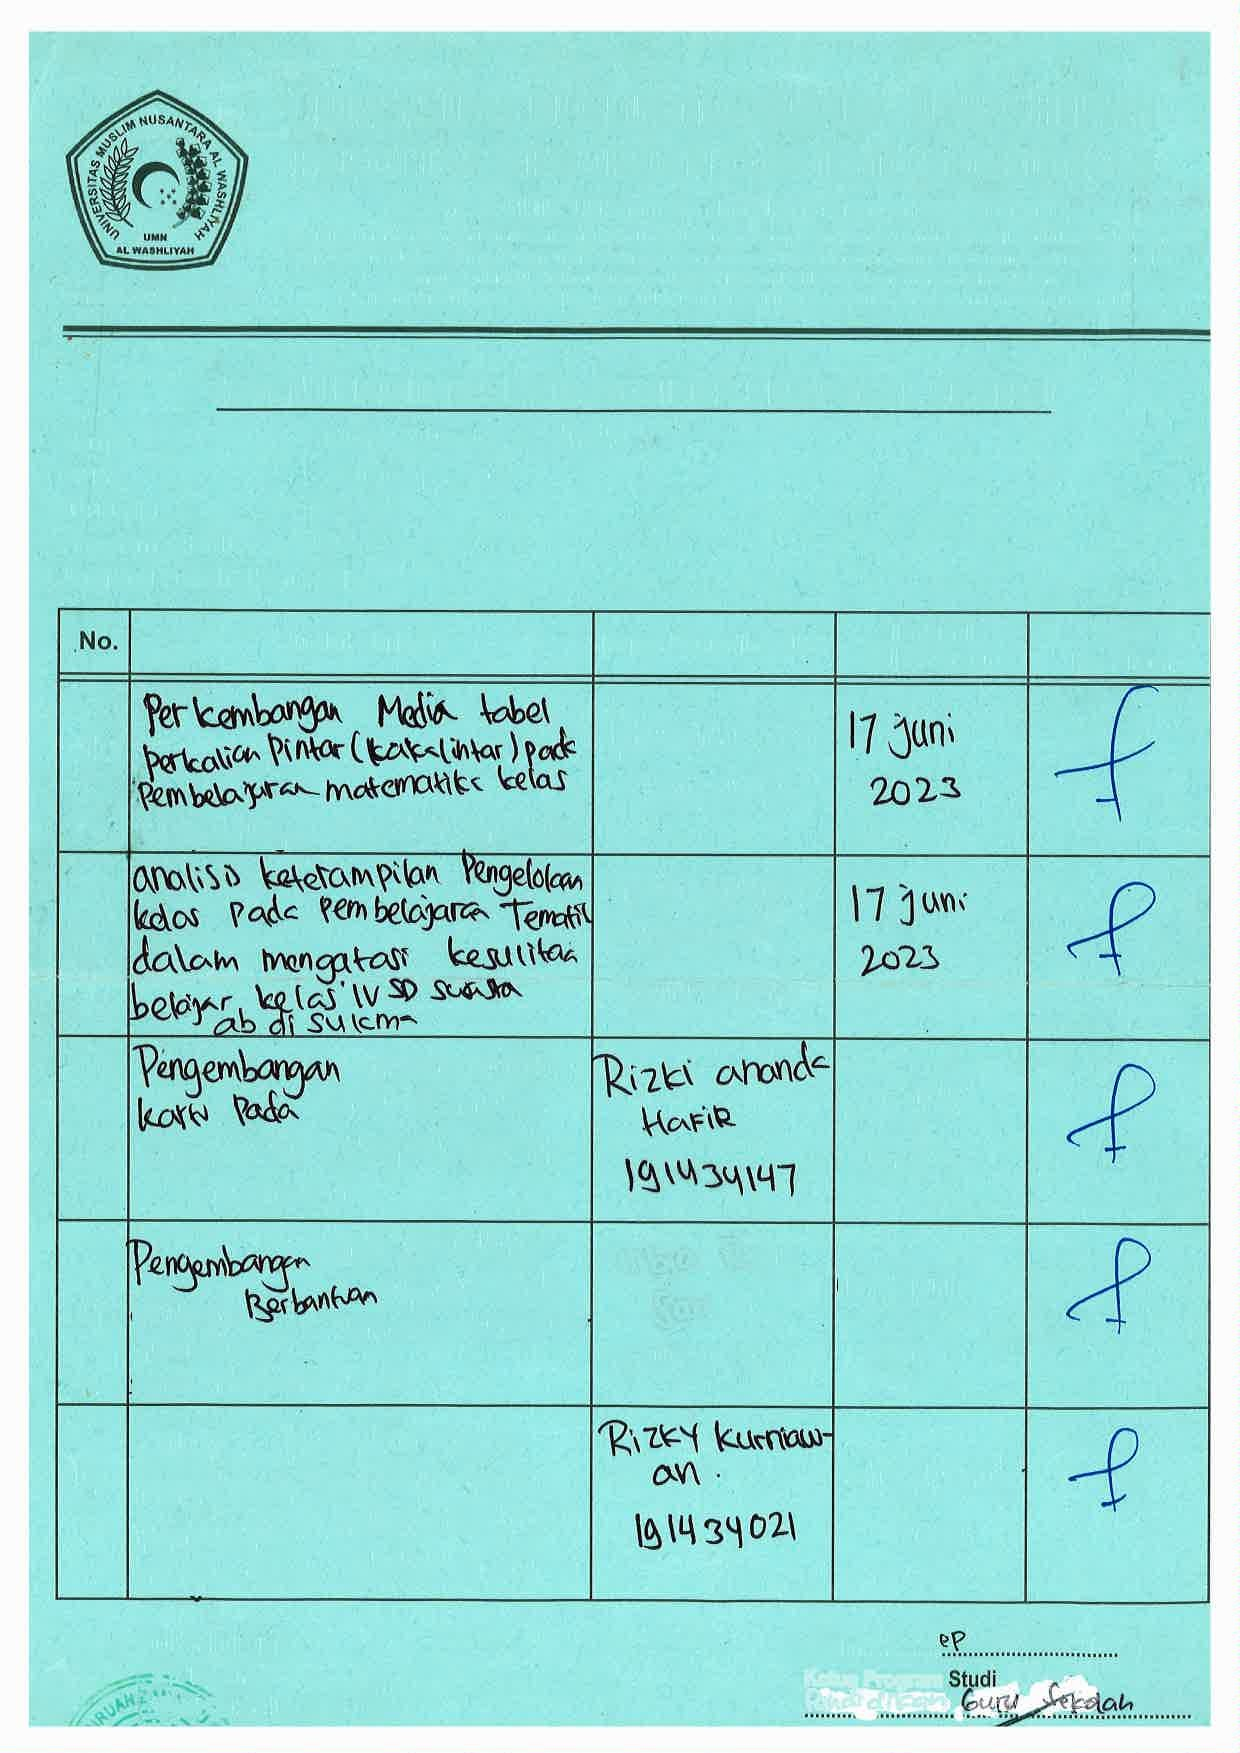 UNIVERSITAS MUSLIM NUSANTARA AL WASHLIYAH
UMN
AL WASHLIYAH
No.
Perkembangan Media tabel
Perkalian Pintar (kakalintar) pada
Pembelajaran matematika kelas
17 juni
2023
analisis keterampilan Pengelolaan
kelas Pada Pembelajaran Tematik
dalam mengatasi kesulitan
belajar kelas IV SD swasta
ab di sukma
17 juni
2023
Pengembangan
kartu Pada
Rizki ananda
Hafik
191434147
Pengembangan
Berbantuan
Rizky kurniaw-
an.
191434021
ep
Ketua Program Studi
Guru Sekolah